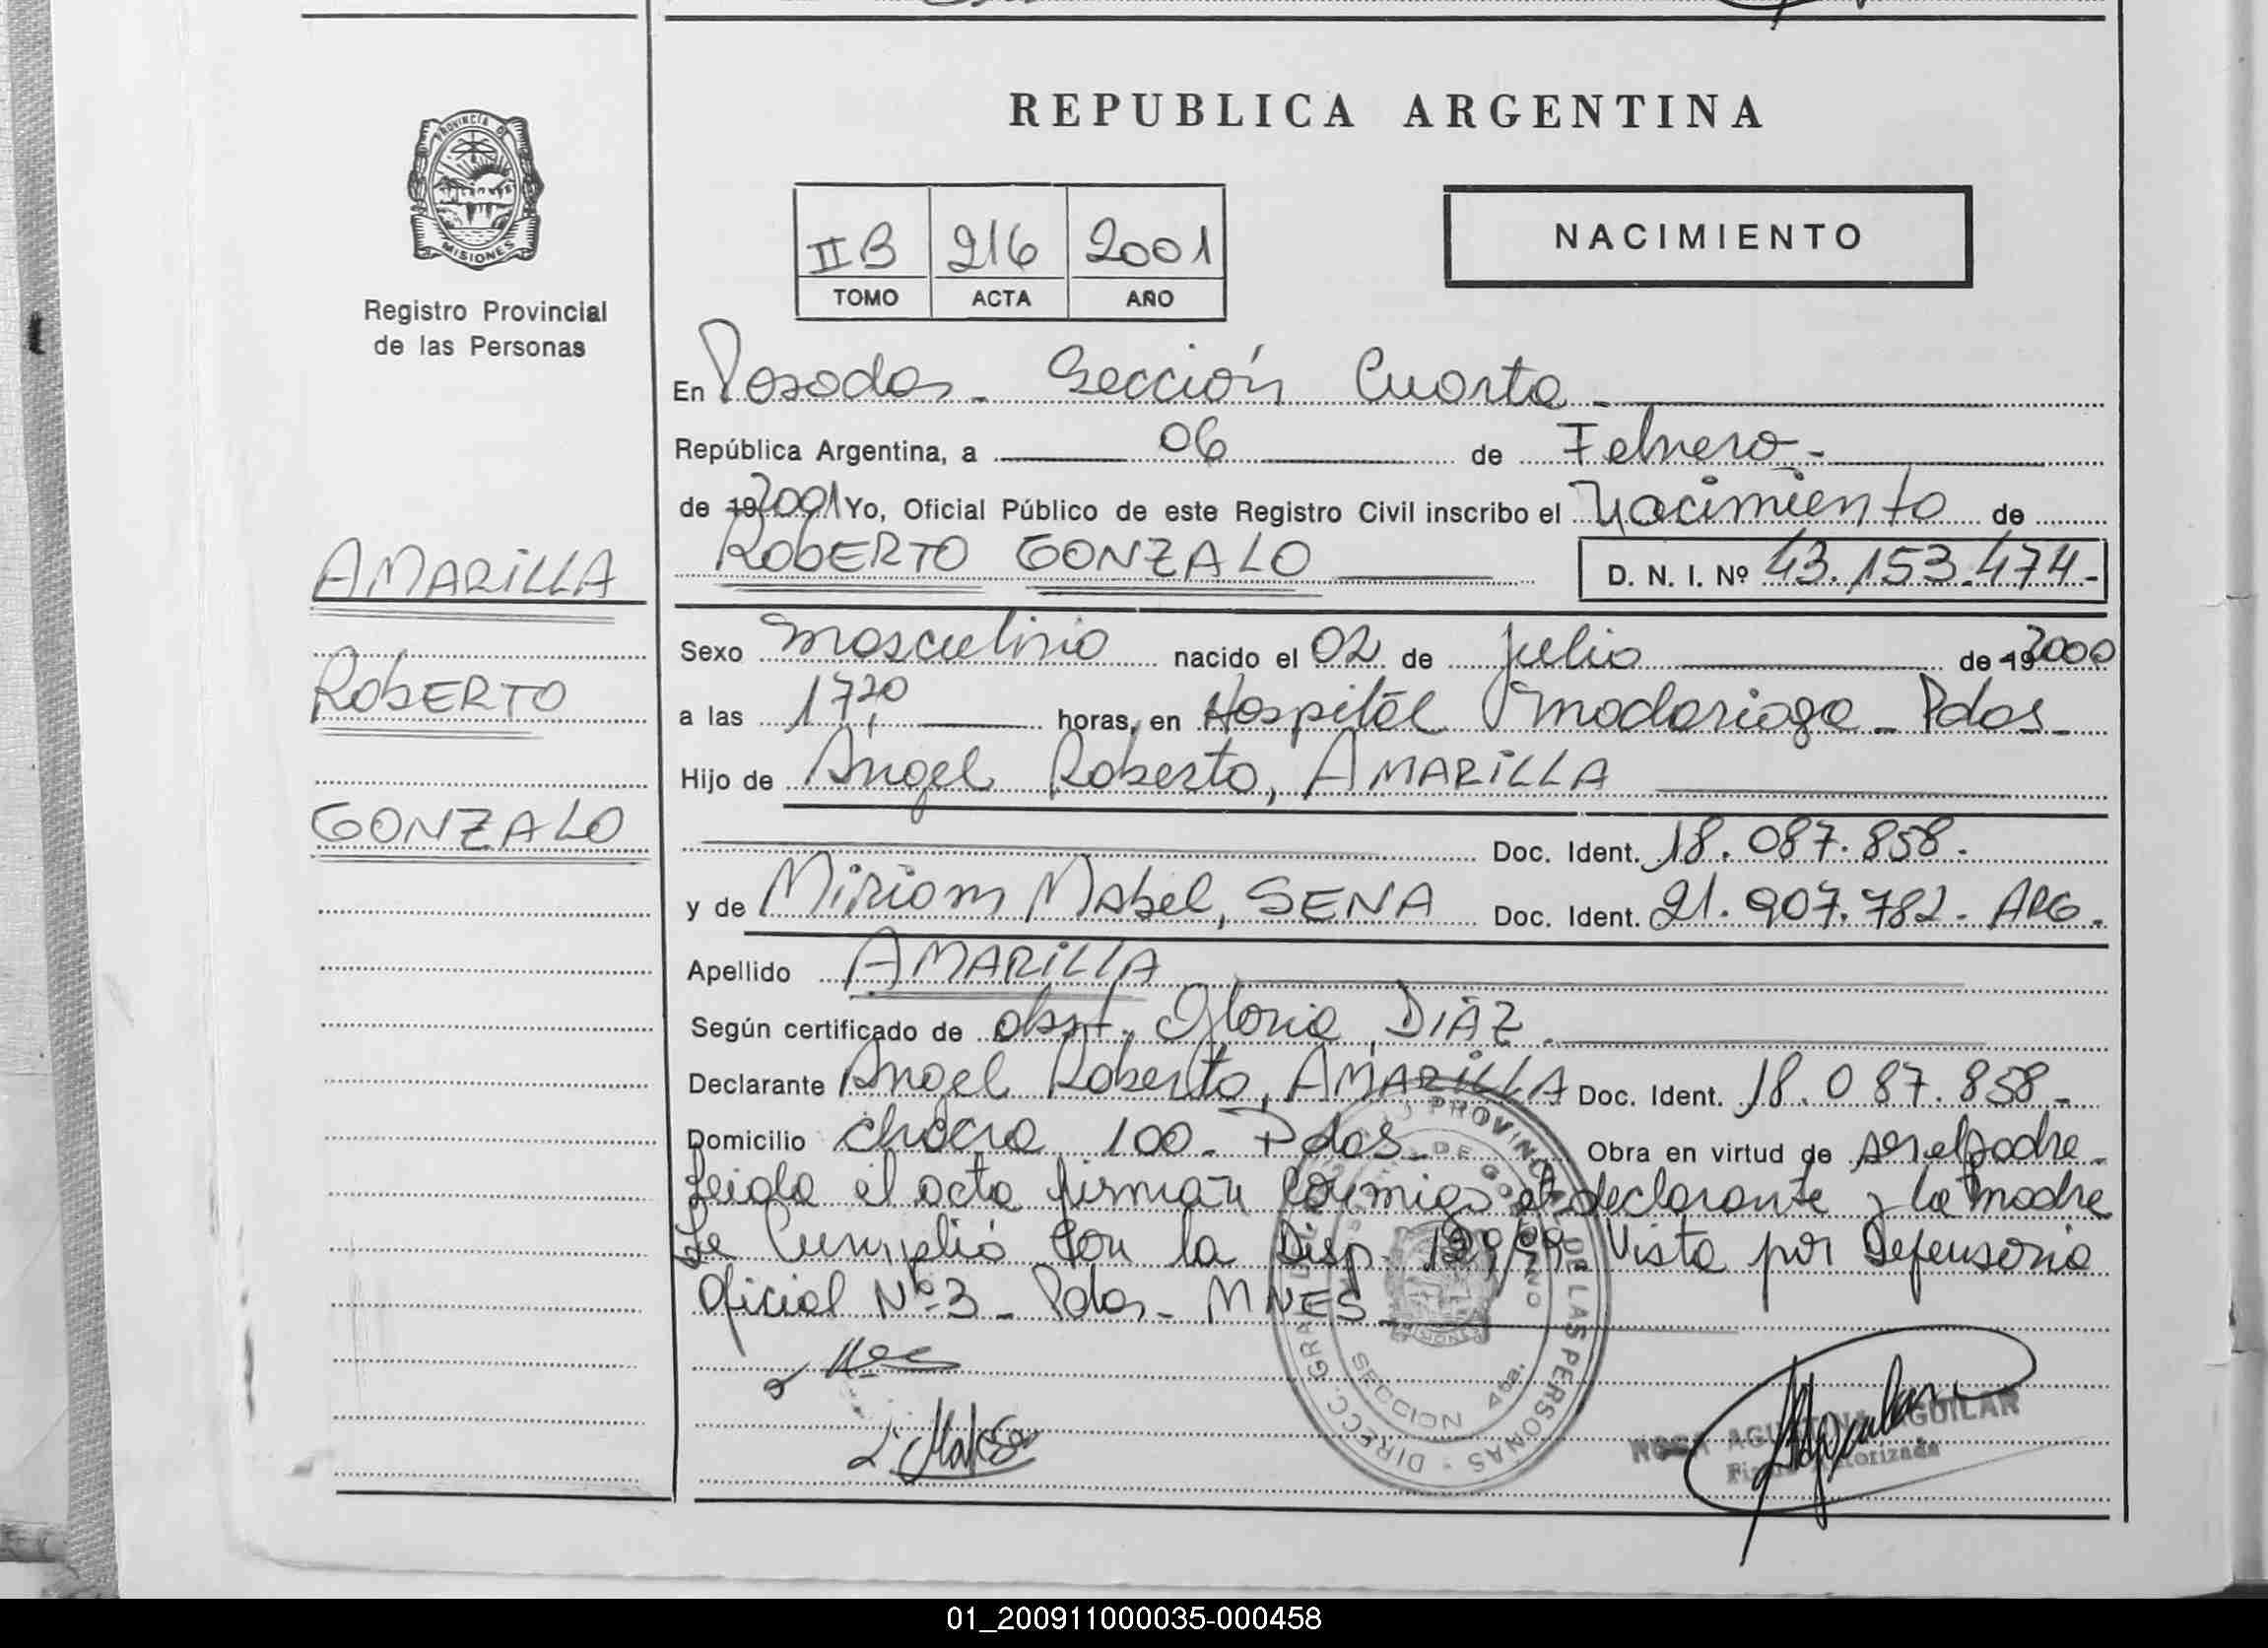 REPUBLICA ARGENTINA
PROVINCIA DE
MISIONES
Registro Provincial
de las Personas
II B 216 2001
TOMO ACTA AÑO
NACIMIENTO
En Posadas - Sección Cuarta -
República Argentina, a 06 de Febrero -
de 19 2001 Yo, Oficial Público de este Registro Civil inscribo el Nacimiento de
ROBERTO GONZALO D. N. I. Nº 43.153.474-
AMARILLA
ROBERTO
GONZALO
Sexo masculino nacido el 02 de Julio de 19 2000
a las 17,20 horas, en Hospital Madariaga - Pdas -
Hijo de Angel Roberto, AMARILLA
Doc. Ident. 18.087.858.
y de Miriam Mabel, SENA Doc. Ident. 21.907.782- ARG.
Apellido AMARILLA
Según certificado de obst. Gloria DIAZ.
Declarante Angel Roberto, AMARILLA Doc. Ident. 18.087.858-
Domicilio chacra 100 - Pdas - Obra en virtud de ser el padre -
Leida el acta firman conmigo el declarante y la madre
Se Cumplió con la Disp. Vista por Defensoria
Oficial Nº 3 - Pdas - MNES
DIRECC. GRAL. PROVINCIAL DE LAS PERSONAS
DE GOBIERNO
MISIONES
SECCION 4ta.
ROSA AGUSTINA AGUILAR
Firma Autorizada
01_200911000035-000458